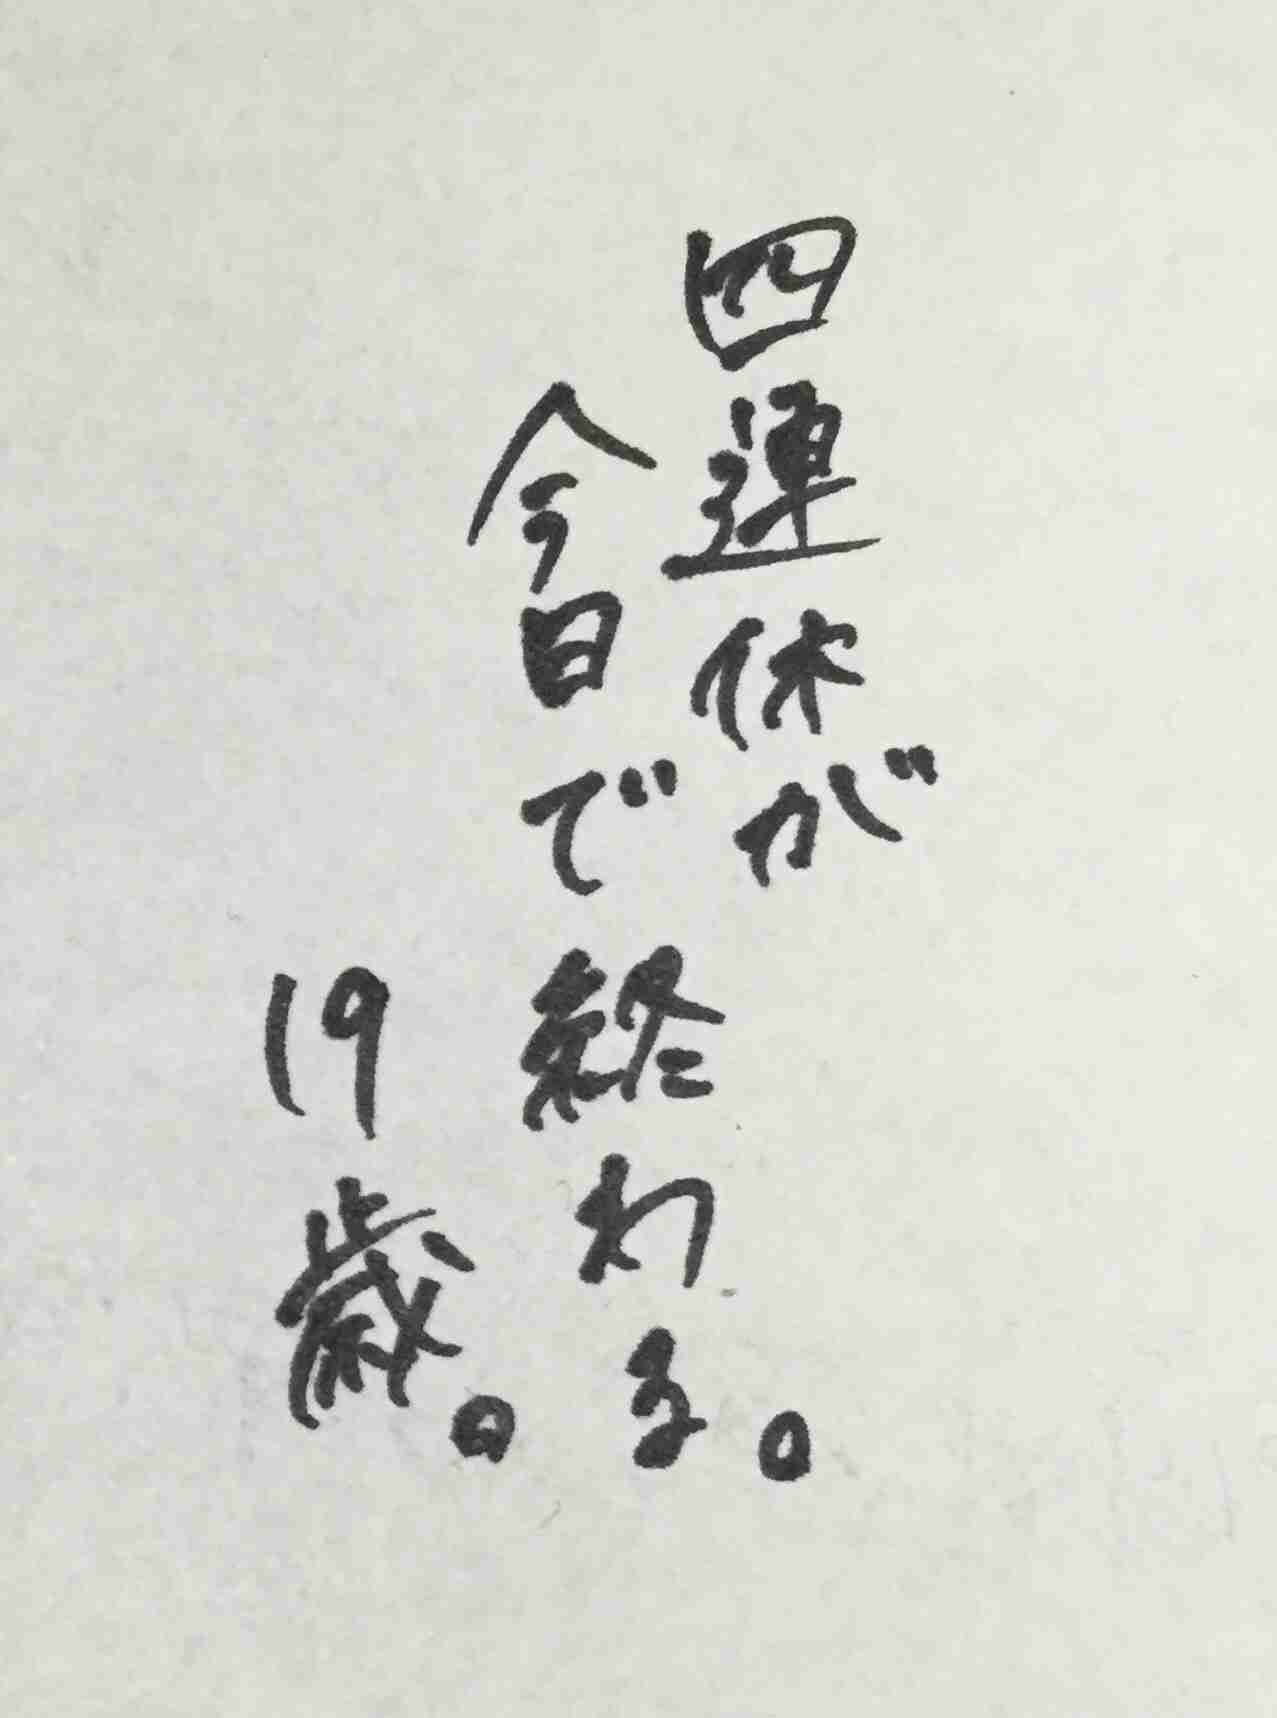 四連休が
今日で終わる。
19歳。